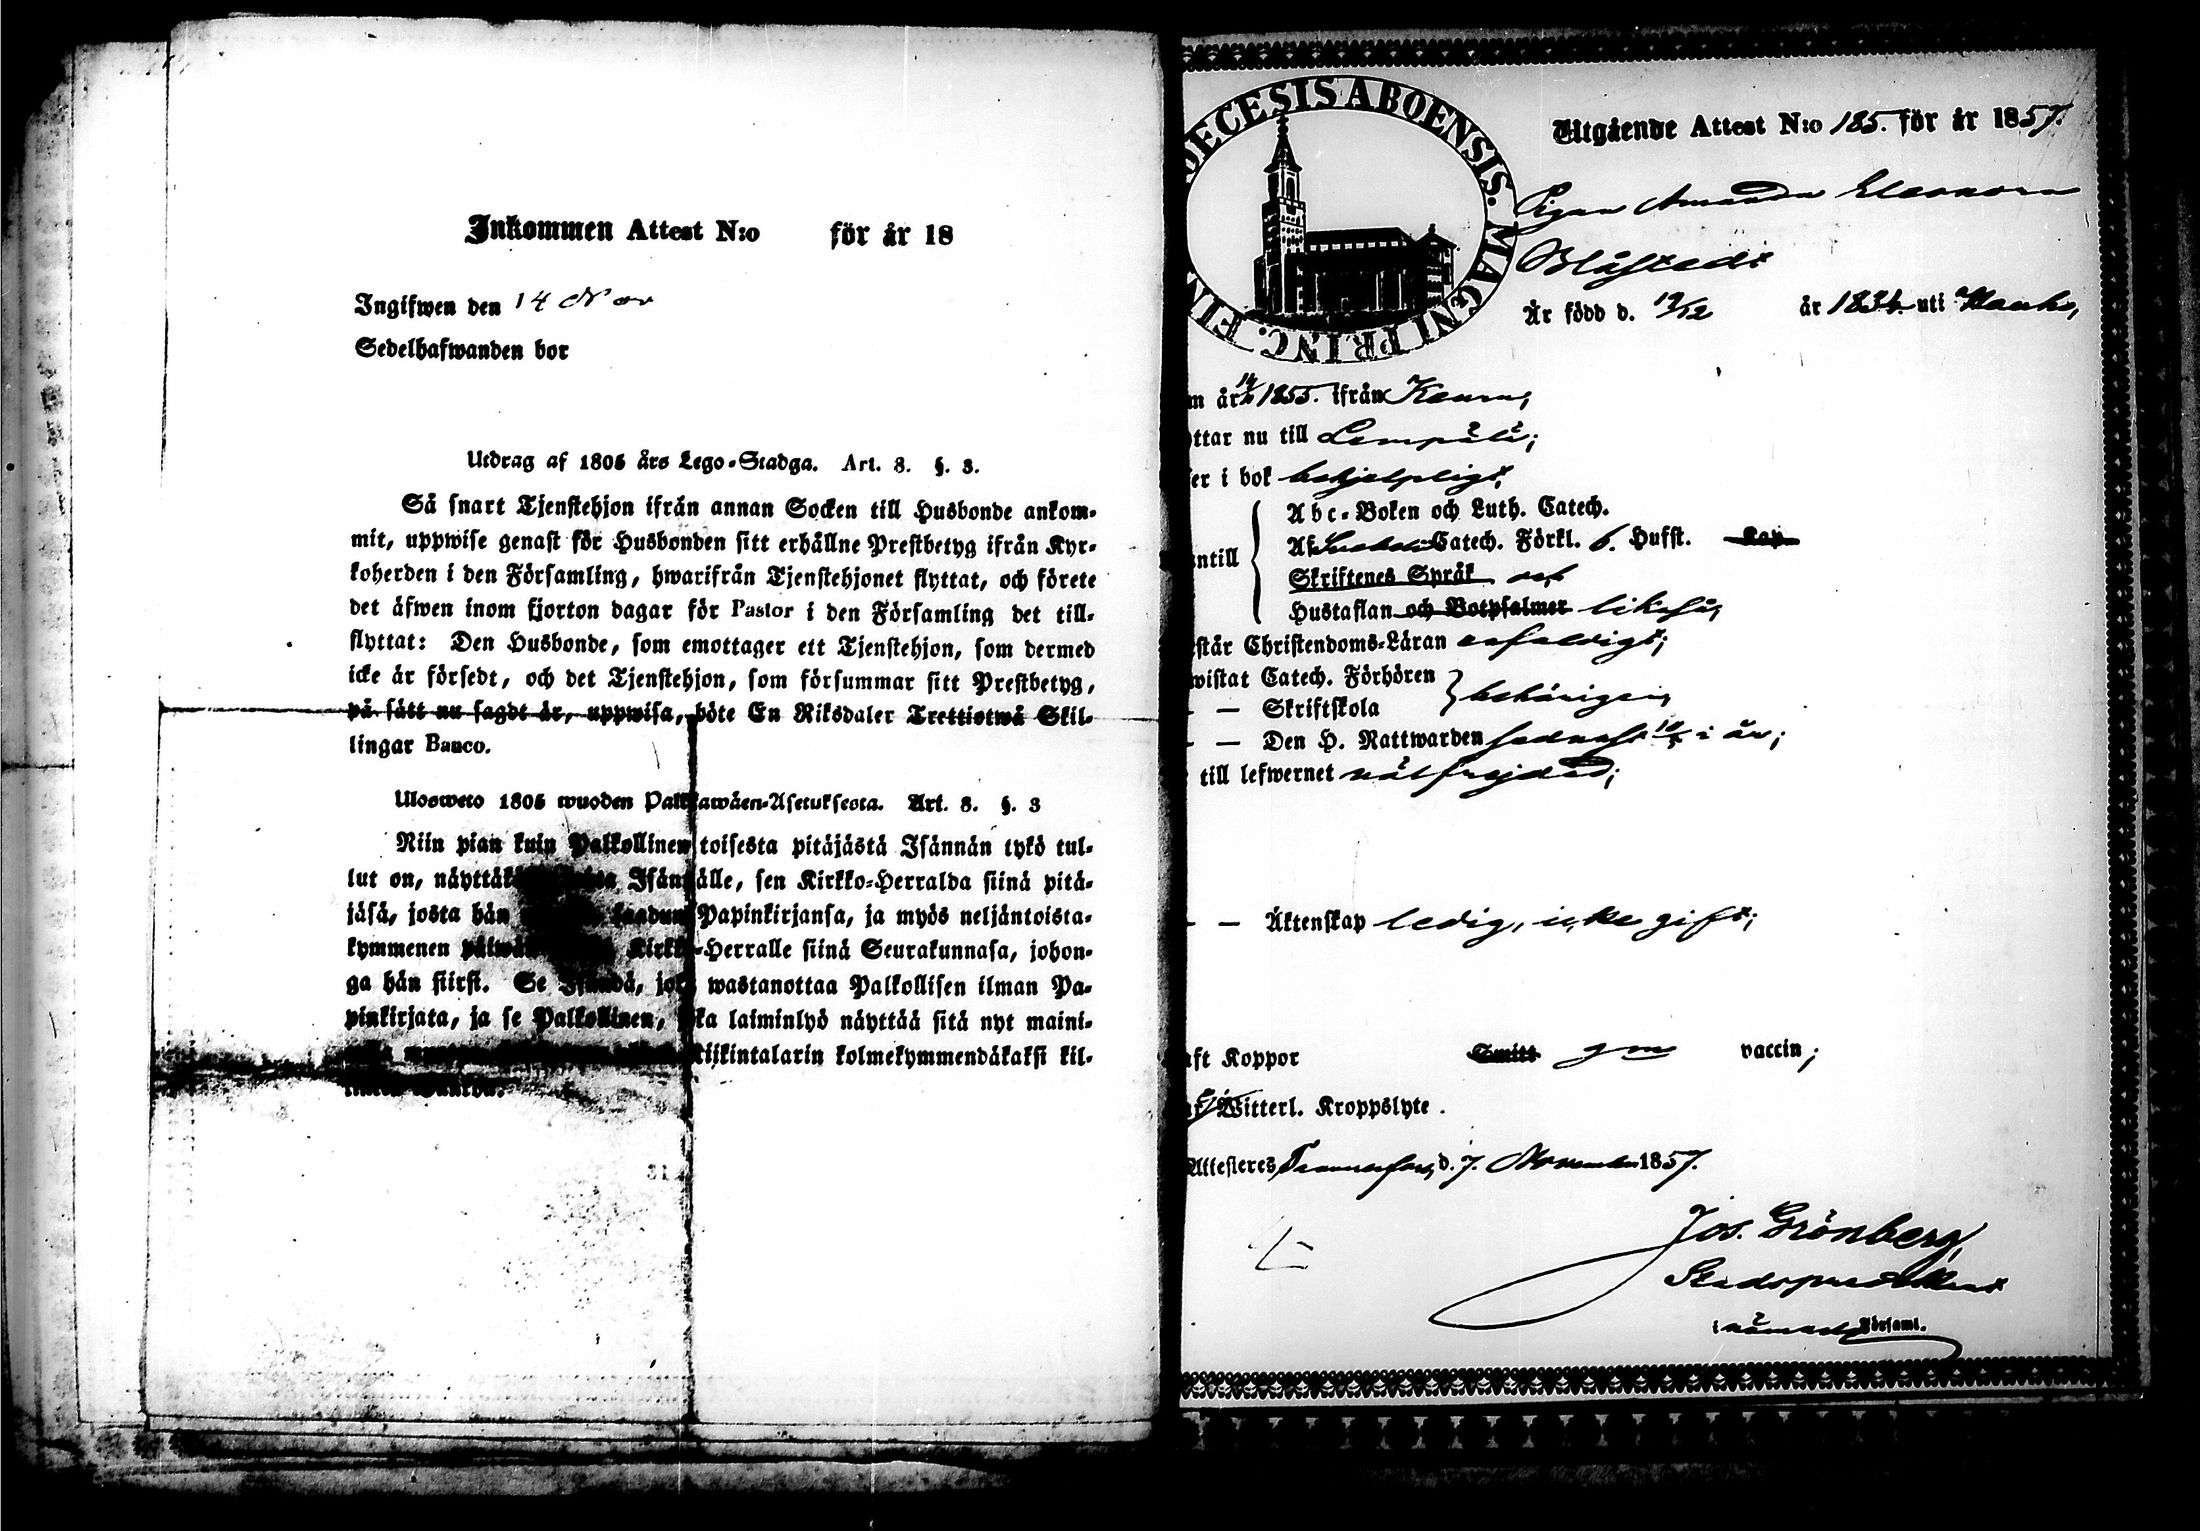 Inkommen Attest N:o för år 18
Ingifwen den 14 Nov
Sedelhafwanden bor
Utdrag af 1805 års Lego-Stadga. Art. 8. §. 3.
Så snart Tjenstehjon ifrån annan Socken till Husbonde ankom-
mit, uppwise genast för Husbonden sitt erhållne Prestbetyg ifrån Kyr-
koherden i den Församling, hwarifrån Tjenstehjonet flyttat, och förete
det äfwen inom fjorton dagar för Pastor i den Församling det till-
flyttat: Den Husbonde, som emottager ett Tjenstehjon, som dermed
icke är försedt, och det Tjenstehjon, som försummar sitt Prestbetyg,
på sätt nu sagdt är, uppwisa, böte En Riksdaler Trettiotwå Skil-
lingar Banco.
Ulosweto 1805 wuoden Palkkawäen-Asetuksesta. Art. 8. §. 3
Niin pian kuin Palkollinen toisesta pitäjästä Isännän tykö tul-
lut on, Isännälle, sen Kirkko-Herralda siinä pitä-
jäsä, josta hän saadun Papinkirjansa, ja myös neljäntoista-
kymmenen Kirkko-Herralle siinä Seurakunnasa, johon-
ga hän siirst. Se Isändä, joka wastanottaa Palkollisen ilman Pa-
pinkirjata, ja se Palkollinen, joka laiminlyö näyttää sitä nyt maini-
Riikintalarin kolmekymmendäkaksi kil-
31
DECESIS ABOENSIS. MAGNI PRINC. FIN
Utgående Attest N:o 185. för år 1857.
Pigan Amanda Eleonora
Blåstedt
Är född d. 19/12 år 1834. uti Kauho,
m år 1855. ifrån
ttar nu till Lempälä;
er i bok behjelpligt,
Abc-Boken och Luth. Catech.
Af Catech. Förkl. 6. Hufst. Kap
ntill
Skriftenes Språk och
Hustaflan och Botpsalmer likaså,
står Christendoms-Läran enfaldigt;
wistat Catech. Förhören
— — Skriftskola behörigen,
— — Den H. Nattwarden sednast i år;
till lefwernet wälfrejdad;
— — Äktenskap ledig, icke gift;
aft Koppor Smitt gm vaccin;
Witterl. Kroppslyte.
Attesteres Tammerfors, d. 7. November 1857.
Jos. Grönberg,
Stadspredikant
i nämnde Församl.